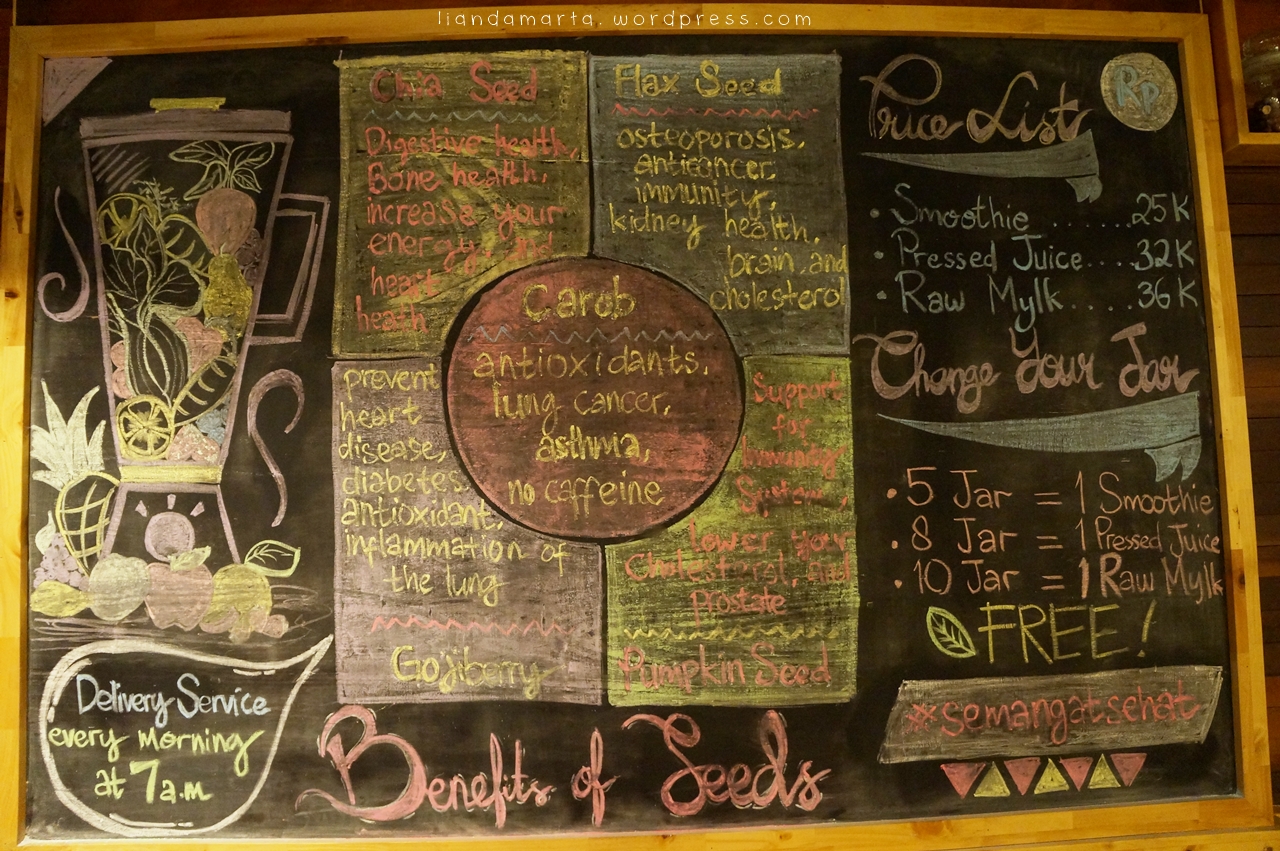 liandamarta.wordpress.com
Chia Seed
Digestive health,
Bone health,
increase your
energy, and
heart
heath
Flax Seed
osteoporosis,
anticancer,
immunity,
kidney health,
brain, and
cholesterol
Carob
antioxidants,
lung cancer,
asthma,
no caffeine
prevent
heart
disease,
diabetes
antioxidant,
inflammation of
the lung
Gojiberry
Support
for
Immunity
System,
Lower your
Cholesterol, and
prostate
Pumpkin Seed
Benefits of Seeds
Delivery Service
every morning
at 7 a.m
Price List
RP
• Smoothie ....... 25K
• Pressed Juice.... 32K
• Raw Mylk.... 36K
Change Your Jar
• 5 Jar = 1 Smoothie
• 8 Jar = 1 Pressed Juice
• 10 Jar = 1 Raw Mylk
FREE!
#semangatsehat